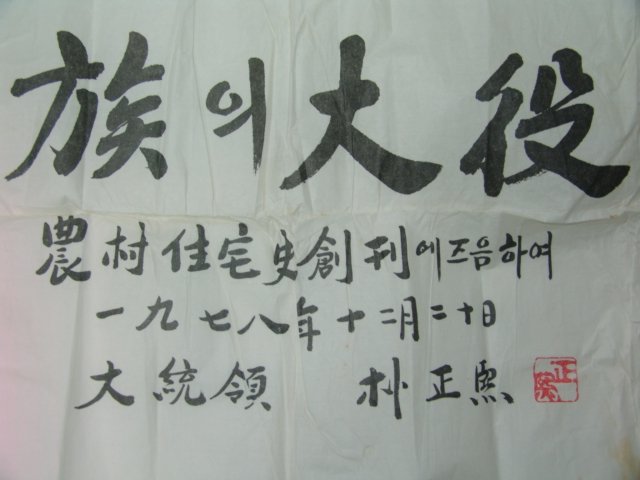 族의大役
農村住宅史創刊에즈음하여
一九七八年十二月二十日
大統領 朴正熙
正熙